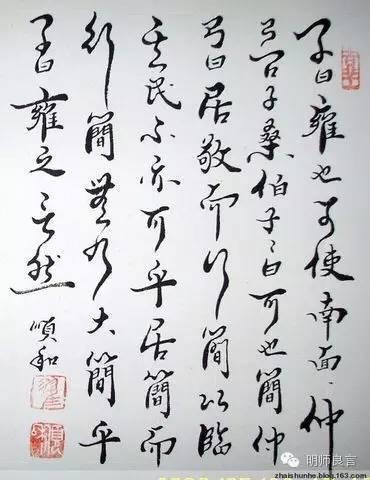 子曰雍也可使南面仲
弓問子桑伯子々曰可也簡仲
弓曰居敬而行簡以臨
其民不亦可乎居簡而
行簡無乃大簡乎
子曰雍之言然
順和
明师良言
zhaishunhe.blog.163.com